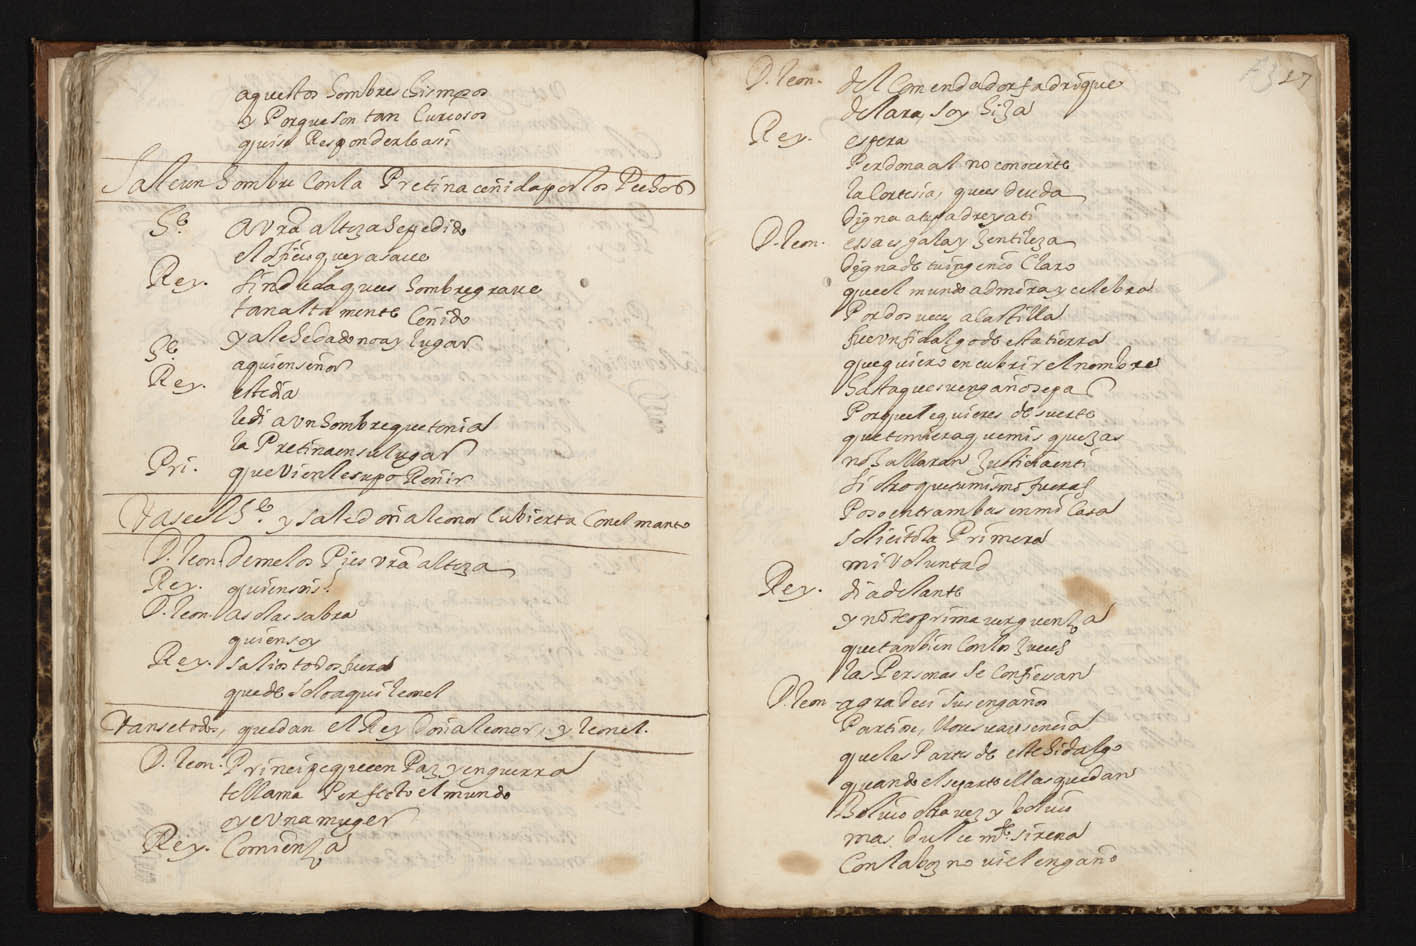 aquestos hombres chismosos
y Porque son tan Curiosos
quise Responderle asi
Sale un hombre Con la Pretina ceñida por los Pechos
he. A Vra alteza he pedido
el ofiçio que ya saue
Rey. sin duda que es hombre graue
tan alta mente Ceñido
ya le he dado no ay lugar
he. a quien señor
Rey. este dia
le di a Vn hombre que tenia
la Pretina en su lugar
Pri. que Vien le supo Reñir
Vase el he. y sale doña leonor Cubierta Con el manto
D. leon. deme los Pies vra alteza
Rey. quien sois?
D. leon. a solas sabra
quien soy
Rey. salios todos fuera
quede solo aqui leonel
Vanse todos, quedan el Rey Doña leonor, y leonel.
D. leon. Principe que en Paz, y en guerra
te llama Perfecto el mundo
oye Vna muger
Rey. Comienza
27
D. leon. del Comendador fadrique
de lara, soy hija
Rey. espera
Perdona al no conocerte
la Cortesia, que es deuda
digna a tu padre y a ti
D. leon. essa es gala y gentileza
digna de tu ingenio Claro
que el mundo admira y celebra
Por dos veces a Castilla
fue vn fidalgo de esta tierra
que quiero encubrir el nombre
hasta que su engaño sepa
Porque le quieres de suerte
que temiera que mis quejas
no hallaran Justicia en ti
si otro que tu mismo fuera
Poso entrambas en mi Casa
solicitò la Primera
mi Voluntad
Rey. di adelante
y no te oprima verguenza
que tanbien Con los Jueces
las Personas se Confiesan
D. leon. agradeci sus engaños
Partiose, llore su ausencia
que las Partes de este hidalgo
quando el se parte ellas quedan
Boluio otra vez y boluio
mas dulce mte. sirena
Con la boz no vi el engaño